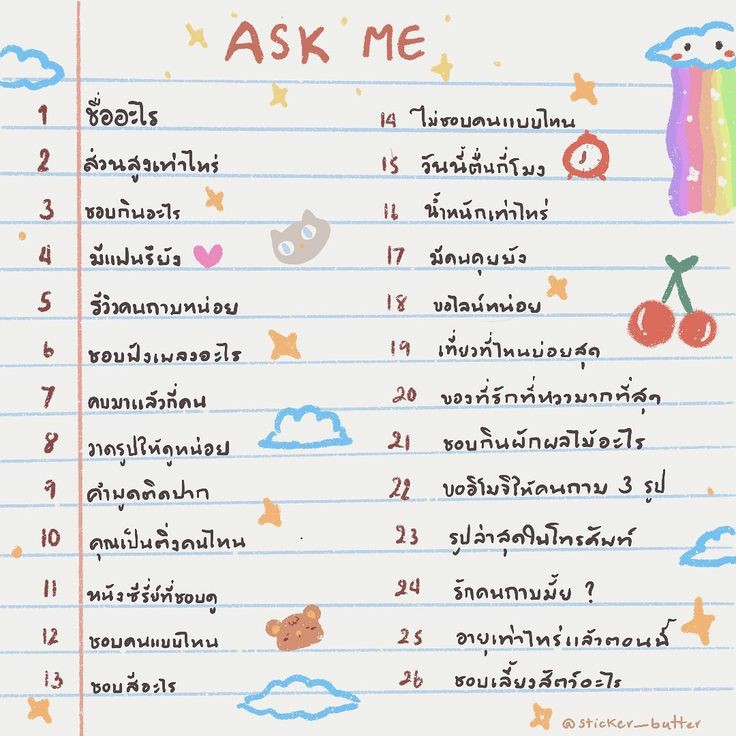 ASK ME
1 ชื่ออะไร
2 ส่วนสูงเท่าไหร่
3 ชอบกินอะไร
4 มีแฟนรึยัง
5 รีวิวคนถามหน่อย
6 ชอบฟังเพลงอะไร
7 คบมาแล้วกี่คน
8 วาดรูปให้ดูหน่อย
9 คำพูดติดปาก
10 คุณเป็นติ่งคนไหน
11 หนังซีรี่ย์ที่ชอบดู
12 ชอบคนแบบไหน
13 ชอบสีอะไร
14 ไม่ชอบคนแบบไหน
15 วันนี้ตื่นกี่โมง
16 น้ำหนักเท่าไหร่
17 มีคนคุยยัง
18 ขอไลน์หน่อย
19 เที่ยวที่ไหนบ่อยสุด
20 ของที่รักที่หวงมากที่สุด
21 ชอบกินผักผลไม้อะไร
22 ขออิโมจิให้คนถาม 3 รูป
23 รูปล่าสุดในโทรศัพท์
24 รักคนถามมั้ย ?
25 อายุเท่าไหร่แล้วตอนนี้
26 ชอบเลี้ยงสัตว์อะไร
@sticker_butter